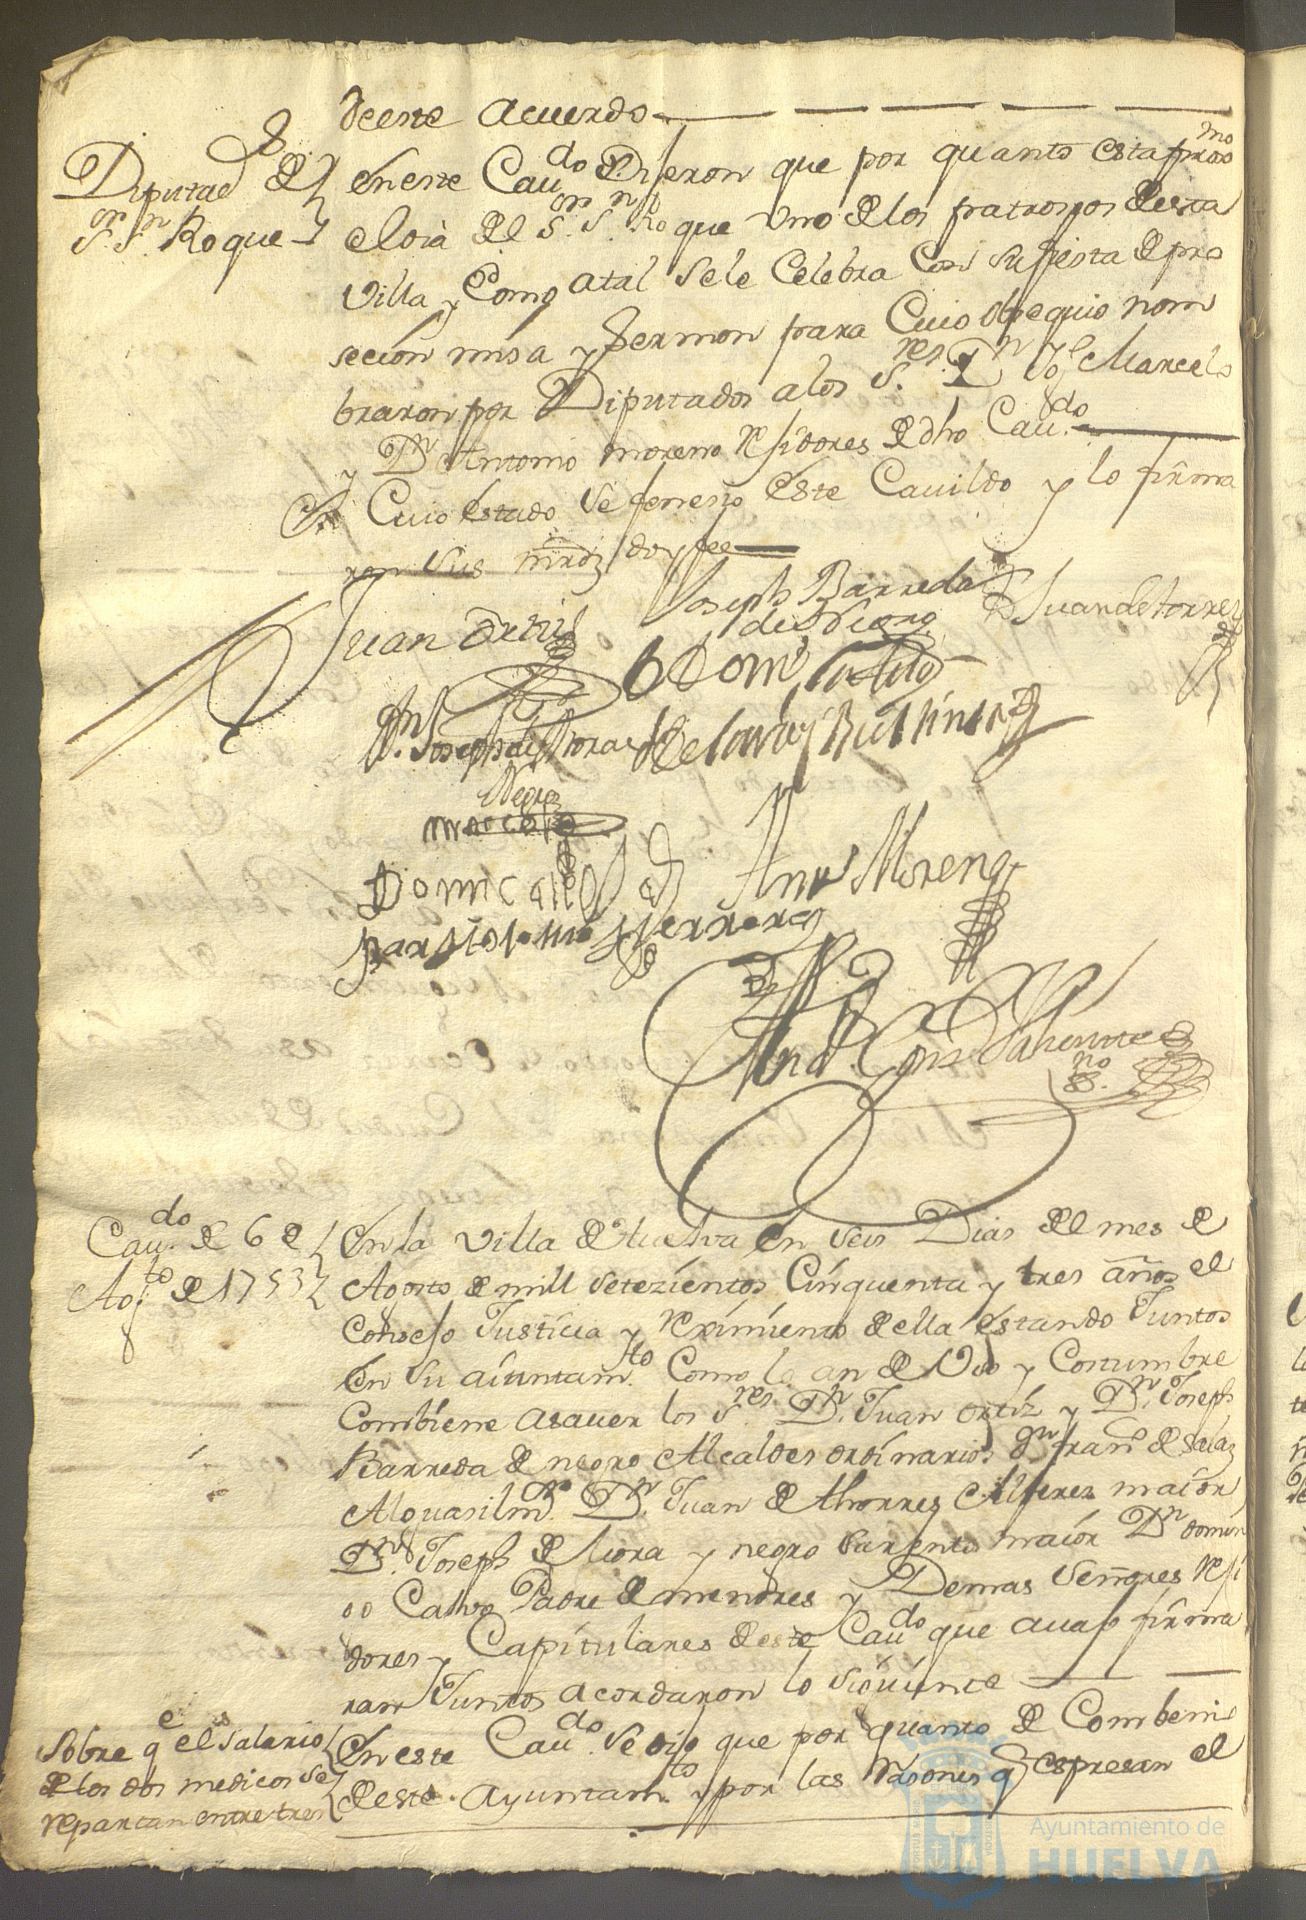 de este acuerdo
Diputad.s del
S.or S.n Roque
en este Cau.do Dijeron que por quanto esta proxmo
el dia del S.or S.n Roque uno de los patronos desta
villa y Como atal se le Celebra Con su fiesta de pro
secion misa y sermon para Cuio obsequio nom
braron por Diputados a los S.res D.n Joseph Marcelo
y D.n Antonio moreno Rejidores de dho Cau.do
En Cuio estado se feneció este Cauildo y lo firma
ron sus mrdz doy fee
Juan Ortiz
Joseph Barreda
de Negro
Juan de torres
D.n Joseph de Mora
Negro
Dom Calbo
Ant.o Moreno
Bartolome Herrera
Cau.do de 6 de
Ag.to de 1753
En la villa de Huelva en seis Dias del mes de
Agosto de mill setezientos Cinquenta y tres años el
Consejo Justicia y reximiento de ella estando Juntos
en su aiuntam.to Como lo an de Vso y Costumbre
Combiene asauer los S.res D.n Juan ortiz y D.n Joseph
Barreda de negro Alcaldes ordinarios D.n Fran.co de Saiaz
Alguasil m.or D.n Juan de thorres Alferes maior
D.n Joseph de Mora y negro sargento maior D.n domin
go Calvo Padre de menores y Demas señores Reji
dores y Capitulares de este Cau.do que auajo firma
ran Juntos acordaron lo siguiente
Sobre q.e el salario
de los dos medicos se
repartan entre tres
En este Cau.do se dijo que por quanto de Combenio
de este Ayuntam.to y por las rasones q espresan el
Ayuntamiento de
HUELVA